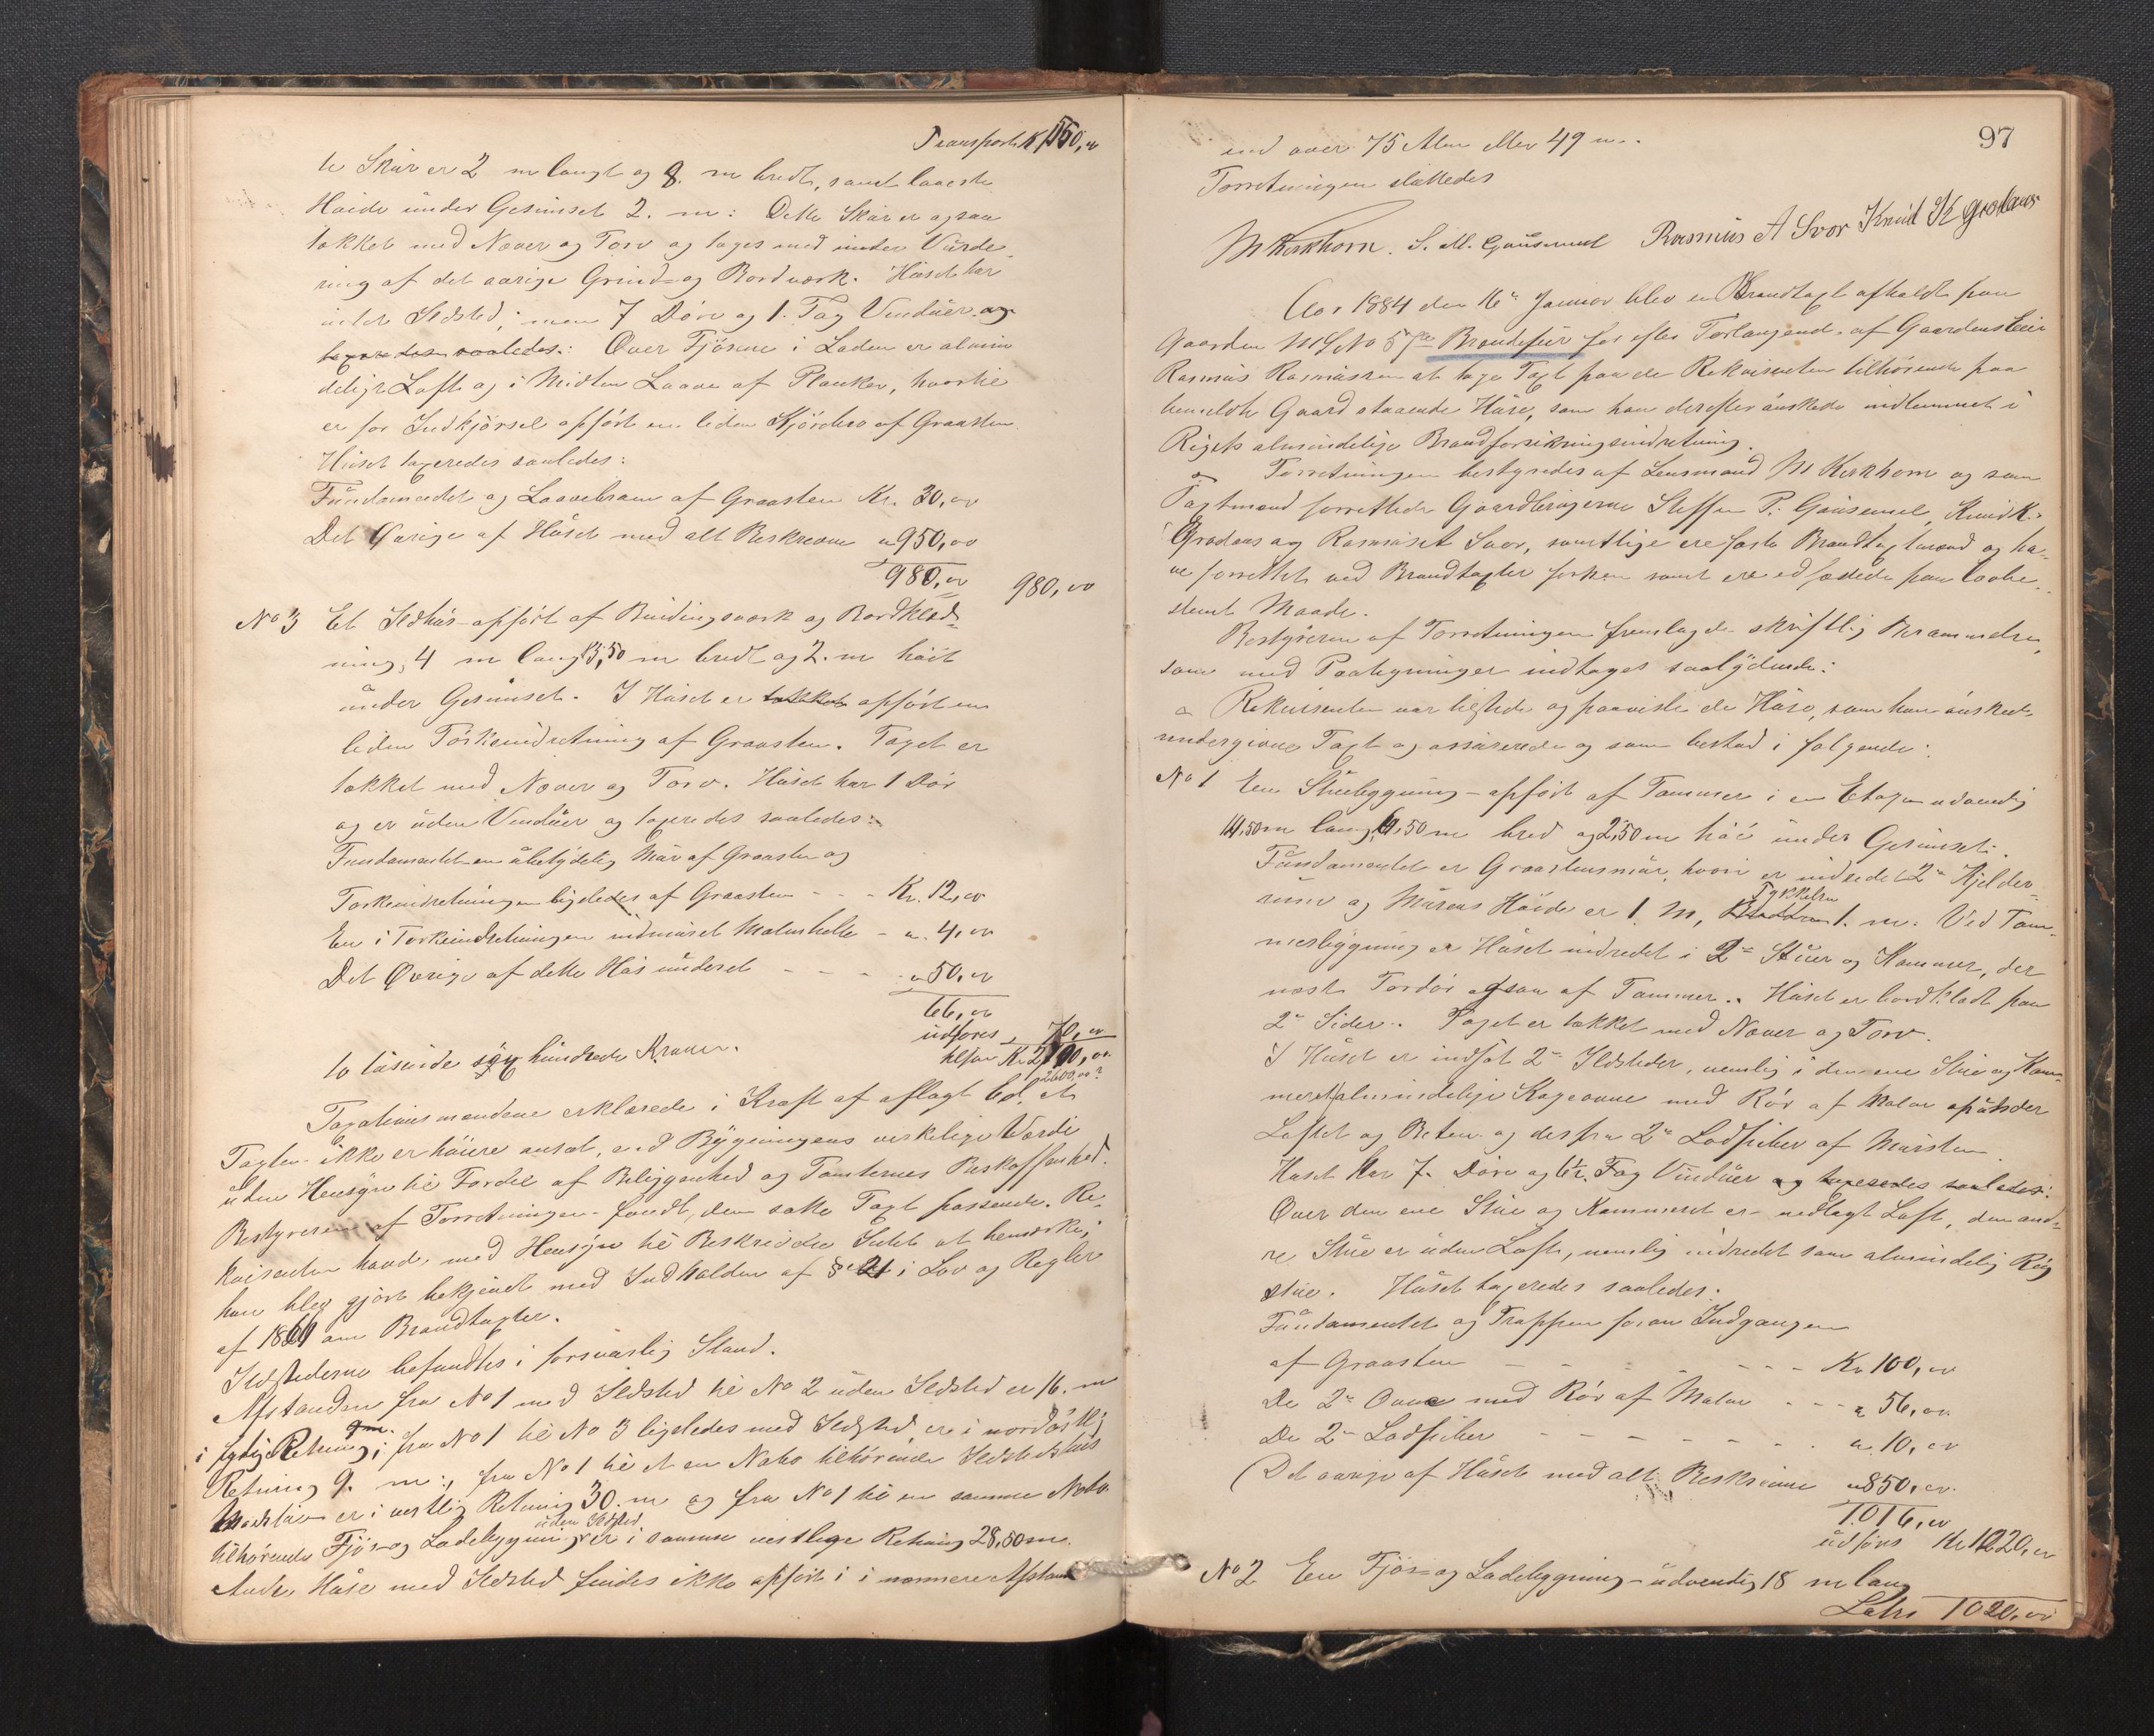 Transport Kr 1150,00
te Skur er 2 m langt og 8. m bredt, samt laveste
Høide under Gesimset 2. m: Dette Skur er ogsaa
tækket med Næver og Torv og tages med under Vurde-
ring af det øvrige Grind- og Bordværk. Huset har
intet Ildsted, men 7 Døre og 1. Fag Vinduer og
taxeredes saaledes: Over Fjøsene i Laden er almin
delige Loft og i Midten Laave af Planker, hvortil
er for Indkjørsel opført en liden Kjørebro af Graasten
Huset taxeredes saaledes:
Fundamentet og Laavebroen af Graasten Kr. 30,00
Det Øvrige af Huset med alt Beskrevne " 950,00
980,00 980,00
No 3 Et Ildhus opført af Bindingsværk og Bordklæd-
ning, 4 m langt 3,50 m bredt og 2. m høit
under Gesimset. I Huset er tækket opført en
liden Tørkeindretning af Graasten. Taget er
tækket med Næver og Torv. Huset har 1 Dør
og er uden Vinduer og taxeredes saaledes:
Fundamentet en ubetydelig Mur af Graasten og
Tørkeindretningen ligeledes af Graasten - - - Kr. 12,00
En i Tørkeindretningen indmuret Malmhelle - " 4,00
Det Øvrige af dette Hus vurderet - - - - " 50,00
66,00
udføres " 70,00
tilsam Kr 2100,00
2600,00?
to tusinde hundrede Kroner.
Taxationsmændene erklærede i Kraft af aflagt Ed, at
Taxten ikke er høiere ansat, end Bygningens virkelige Værdi
uden Hensyn til Fordel af Beliggenhed og Tomternes Beskaffenhed.
Bestyreren af Forretningen fandt, den satte Taxt passende. Re-
kvirenten havde med Hensyn til Beskrivelsen Intet at bemærke;
han blev gjort bekjendt med Indholden af § 21 i Lov og Regler
af 18 om Brandtaxter.
Ildstederne befandtes i forsvarlig Stand.
Afstanden fra No 1 med Ildsted til No 2 uden Ildsted er 16. m
i sydlig Retning; fra No 1 til No 3 ligeledes med Ildsted, er i nordøstlig
Retning 9. m:, fra No 1 til et en Nabo tilhørende Ildstedshus
er i vestlig Retning 30. m og fra No 1 til en samme Nabo
uden Ildsted
tilhørende Fjøs og Ladebygning er i samme vestlige Retning 28,50 m.
Andre Huse med Ildsted findes ikke opført i nærmere Afstand

97
end over 75 Alen eller 49 m..
Forretningen sluttedes
M Kirkhorn. S. M. Gausemel Rasmus A Svor Knud K Grodaas
Aar 1884 den 16de Januar blev en Brandtaxt afholdt paa
Gaarden M L No 57 Brandefur for efter Forlangende af Gaardens Eier
Rasmus Rasmussen at tage Taxt paa de Rekvirenten tilhørende paa
bemeldte Gaard staaende Huse, som han derefter ønskede indlemmet i
Rigets almindelige Brandforsikringsindretning.
Forretningen bestyredes af Lensmand M Kirkhorn og som
Taxtmænd forrettede Gaardbrugerne Steffen P. Gausemel, Knud K.
Grodaas og Rasmus A Svor, samtlige ere faste Brandtaxtmænd og ha-
ve forrettet ved Brandtaxter forhen samt ere edfæstede paa lovbe-
stemt Maade.
Bestyreren af Forretningen fremlagde skriftlig Beramelse,
som med Paategninger indtages saalydende:
Rekvirenten var tilstede og paaviste de Huse, som han ønskede
undergivne Taxt og assurerede og som bestod i følgende:
No 1 En Stuebygning - opført af Tømmer i en Etage udvendig
14,50 m lang, 6,50 m bred og 2,50 m høi under Gesimset.
Fundamentet er Graastensmur, hvori er indredet 2de Kjelder-
rum og Murens Høide er 1. m, Tykkelsen 1. m. Ved Tøm-
mesbygning er Huset indredet i 2de Stuer og Kammer, der
næst Fordør ogsaa af Tømmer. Huset er bordklædt paa
2de Sider. Taget er tækket med Næver og Torv.
I Huset er indsat 2de Ildsteder, nemlig i den ene Stue og Kam-
meret almindelige Kogeovne med Rør af Malm op under
Loftet og Beten og derfra 2de Lodpiber af Mursten
Huset har 7. Døre og 6½ Fag Vinduer og taxeredes saaledes:
Over den ene Stue og Kammeret er nedlagt Loft, den and-
re Stue er uden Loft, nemlig indredet som almindelig Røg
stue. Huset taxeredes saaledes:
Fundamentet og Trappen foran Indgangen
af Graasten - - - - - - - Kr 100,00
De 2de Ovne med Rør af Malm - - - " 56,00
De 2de Lodpiber - - - - - - - " 10,00
Det øvrige af Huset med alt Beskrevne " 850,00
1016,00
udføres Kr 1020,00
No 2 En Fjøs- og Ladebygning - udvendig 18 m lang
Latus 1020,00